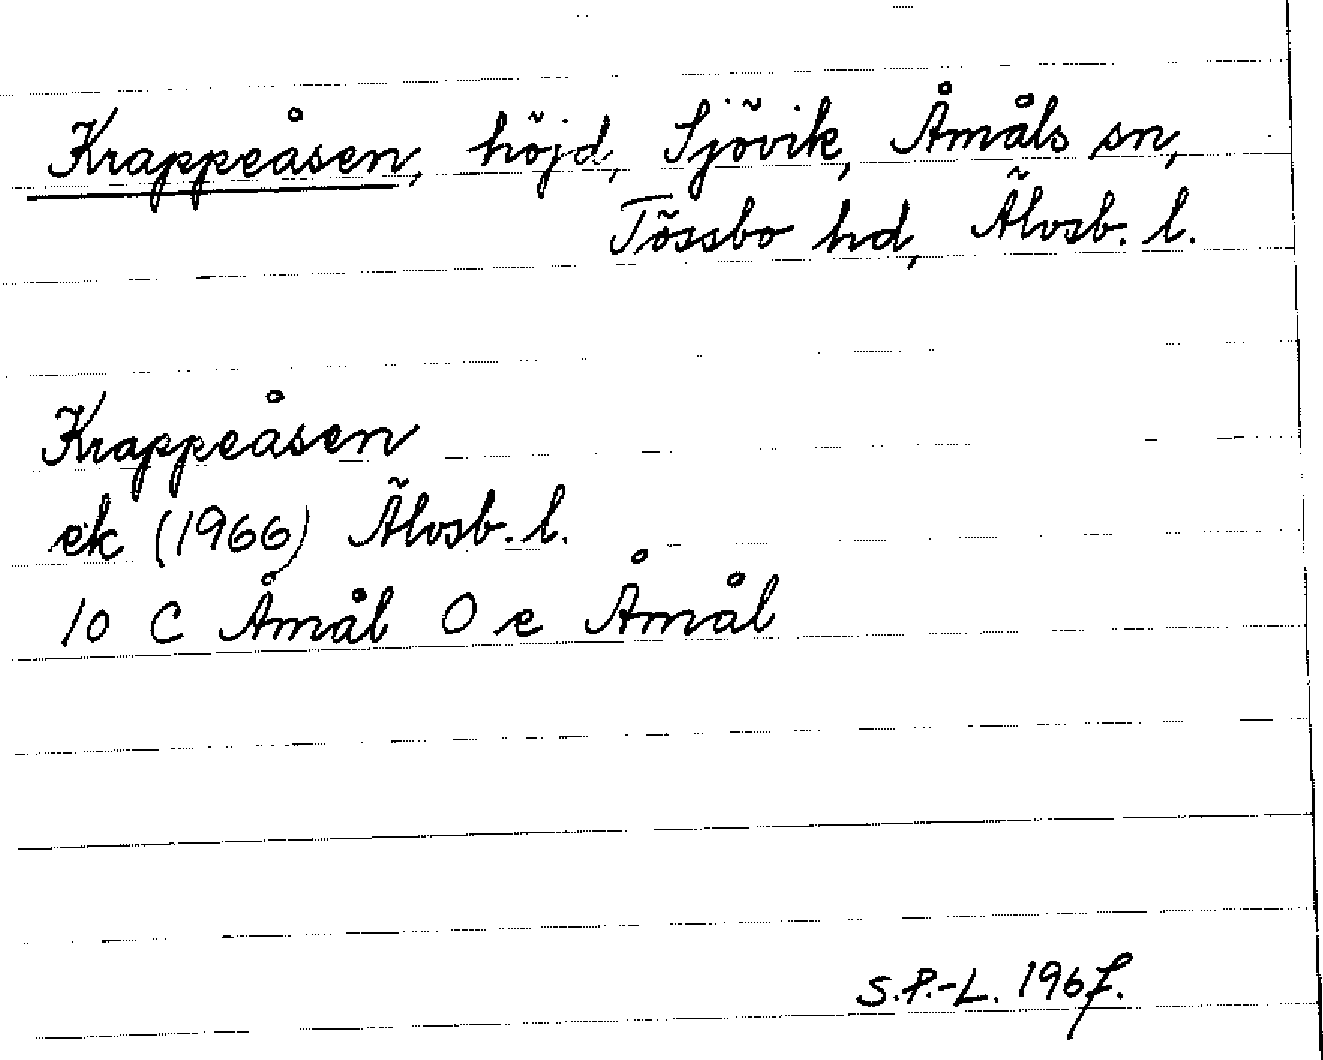 Krappeåsen, höjd, Sjövik, Åmåls sn,
Tössbo hd, Älvsb. l.
Krappeåsen
ek (1966) Älvsb. l.
10 C Åmål O e Åmål
S.P.-L. 1967.